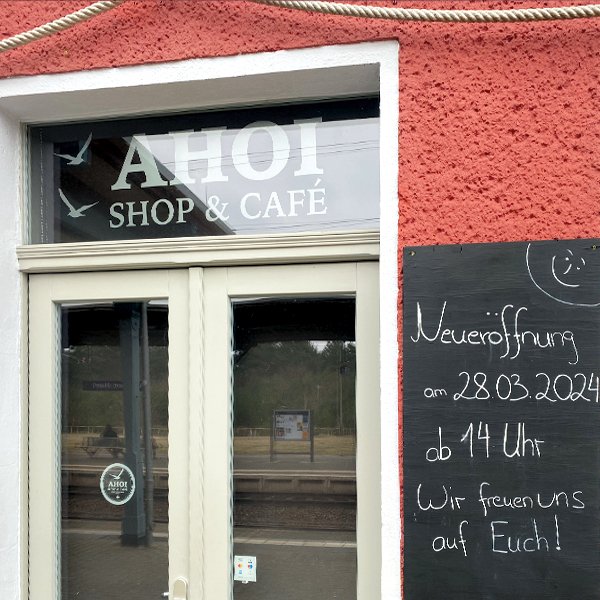 AHOI
SHOP & CAFÉ
Neueröffnung
am 28.03.2024
ab 14 Uhr
Wir freuen uns
auf Euch!
AHOI